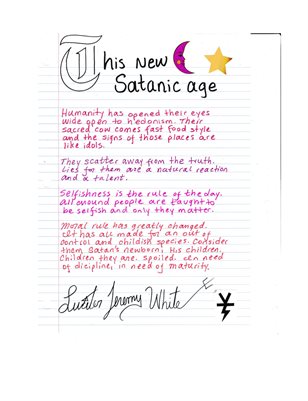 This New
Satanic age
Humanity has opened their eyes
wide open to hedonism. Their
sacred cow comes fast food style
and the signs of those places are
like idols.
They scatter away from the truth.
Lies for them are a natural reaction
and a talent.
Selfishness is the rule of the day.
All around people are taught to
be selfish and only they matter.
Moral rule has greatly changed.
It has all made for an out of
control and childish species. Consider
them Satan's newborn, His children.
Children they are. Spoiled. In need
of dicipline, in need of maturity.
Lucifer Jeremy White